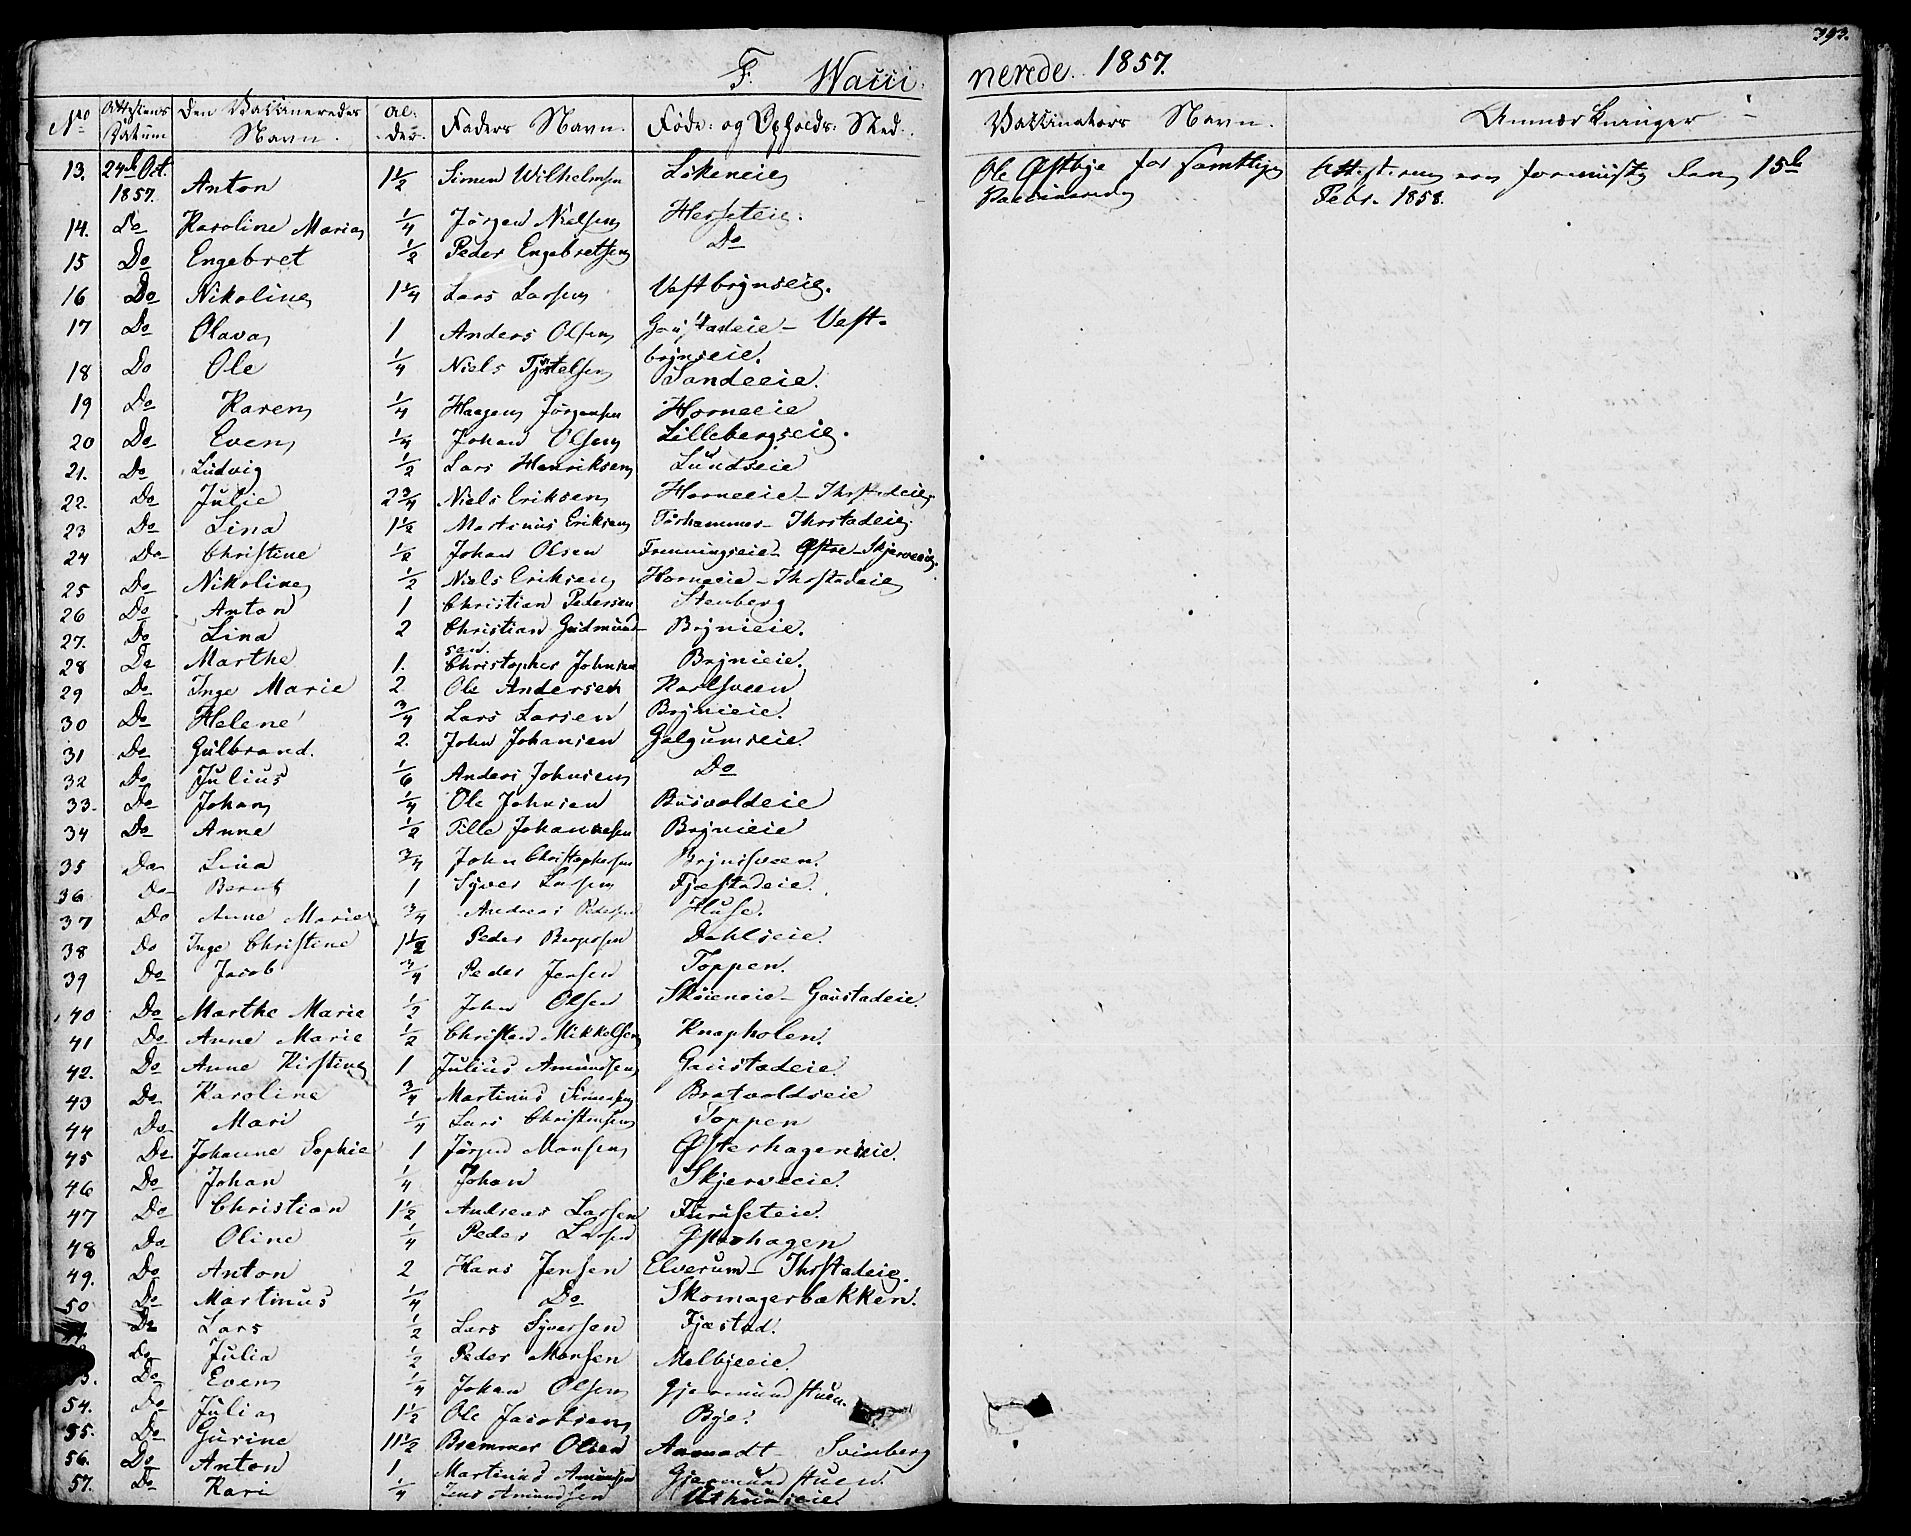 393.
F. Wacci- nerede. 1857.
No Attestens Datum Den Vakkineredes Navn. Al- der. Faders Navn. Føde- og Opholds-Sted. Vakkinators Navn. Anmærkninger
13. 24de Oct. 1857. Anton 1½ Simen Wilhelmsen Lökeneie Ole Østbye for samtlige Vaccinerede 15de Febr. 1858.
14. Do Karoline Maria ¼ Jørgen Nielsen Herseteie.
15 Do Engebret ½ Peder Engebretsen Do
16 Do Nikoline 1¼ Lars Larsen Vestbynseie.
17 Do Olava 1 Anders Olsen Gaustadeie – Vest-
bynseie.
18 Do Ole ¼ Niels Sandeeie.
19 Do Karen ¼ Haagen Jørgensen Horneeie
20 Do Even ¼ Johan Olsen Lillebergseie.
21. Do Ludvig ½ Lars Henriksen Lundseie
22. Do Julie 2¾ Niels Eriksen Horneeie – Thrstadeie
23 Do Lina 1½ Martinus Eriksen Torhammer – Thrstadeie.
24 Do Christine ½ Johan Olsen Frenningseie – Østre-Skjerveeie.
25 Do Nikoline ½ Niels Eriksen Horneeie – Thrstadeie
26 Do Anton 1 Christian Pedersen Stenberg
27. Do Lina 2 Christian Gudmund- Brynieie.
sen.
28 Do Marthe 1. Christopher Johnsen Brynieie.
29 Do Inge Marie 2. Ole Andersen Karlsveen
30 Do Helene ¾ Lars Larsen Brynieie.
31 Do Gulbrand. 2. John Johansen Galgumseie.
32 Do Julius 1/6 Anders Johnsen Do
33. Do Johan ¼ Ole Johnsen Busvoldeie
34 Do Anne ½ Tille Johannesen Brynieie
35 Do Lina ¾ John Christophersen Brynisveen.
36 Do Bernt 1 Syver Larsen Fjæstadeie.
37 Do Anne Marie ¾ Andreas Pedersen Huse.
38 Do Inge Christine 1½ Peder Bergersen Dahlseie.
39 Do Jacob ¾ Peder Jensen Toppen.
40 Do Marthe Marie ½ John Olsen Sköieneie – Gaustadeie.
41 Do Anne Marie ½ Christen Mikkelsen Knapholen.
42. Do Anne Kirstine 1 Julius Amundsen Gaustadeie.
43 Do Karoline ¾ Martinus Simensen Bratvoldseie
44 Do Mari ¼ Lars Christensen Toppen
45 Do Johanne Sophie 1 Jørgen Monsen Østerhagenseie.
46 Do Johan ¼ Johan Skjerveeie.
47 Do Christian 1½ Andreas Larsen Furuseteie.
48 Do Oline ¼ Peder Larsen Østerhagen
49. Do Anton 2 Hans Jensen Elverum – Thrstadeie.
50 Do Martinus ¼ Do Skomagerbækken.
Do Lars ½ Lars Syversen Fjæstad.
Do Julia ½ Peder Monsen Melbyeeie.
Do Even ¼ Johan Olsen Gjermundstuen.
54. Do Julia 1½ Ole Jacobsen Bye.
55. Do Gurine 11½ Bremmer Olsen Aamodt Svinberg
56. Do Anton 1 Martinus Amundsen Gjermundstuen
57. Do Kari ¼ Jens Amundsen